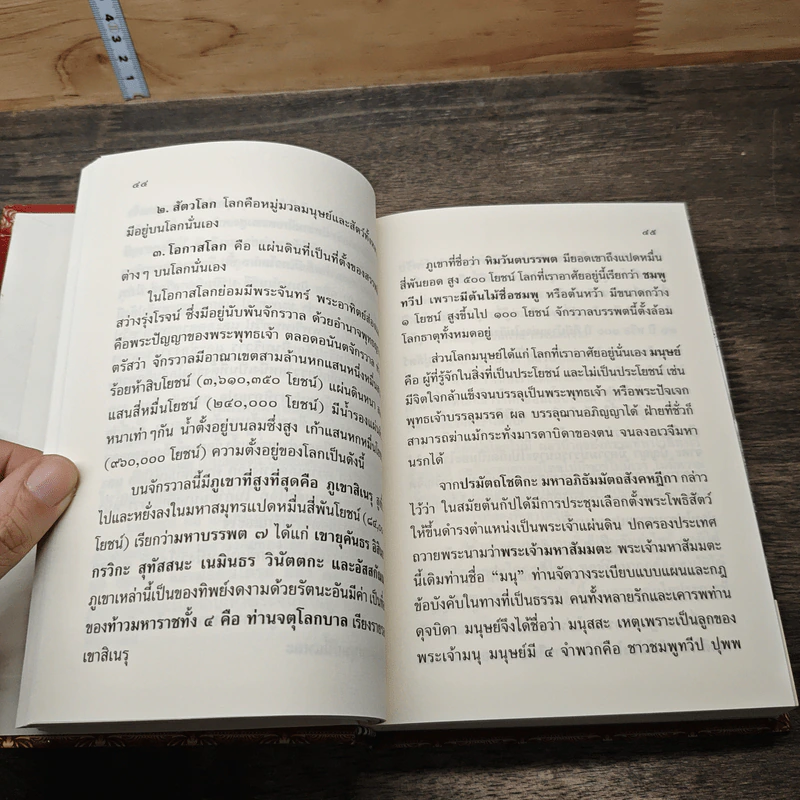 4 3 2 1
๔๔
๒. สัตวโลก โลกคือหมู่มวลมนุษย์และสัตว์
มีอยู่บนโลกนั่นเอง
๓. โอกาสโลก คือ แผ่นดินที่เป็นที่ตั้งของ
ต่างๆ บนโลกนั่นเอง
ในโอกาสโลกย่อมมีพระจันทร์ พระอาทิตย์
สว่างรุ่งโรจน์ ซึ่งมีอยู่นับพันจักรวาล ด้วยอำนาจ
คือพระปัญญาของพระพุทธเจ้า ตลอดอนันตจักรวาล
ตรัสว่า จักรวาลมีอาณาเขตสามล้านหกแสนหนึ่งหมื่น
ร้อยห้าสิบโยชน์ (๓,๖๑๐,๓๕๐ โยชน์) แผ่นดินหนา
แสนสี่หมื่นโยชน์ (๒๔๐,๐๐๐ โยชน์) มีน้ำรอง
หนาเท่าๆกัน น้ำตั้งอยู่บนลมซึ่งสูง เก้าแสนหกหมื่น
(๙๖๐,๐๐๐ โยชน์) ความตั้งอยู่ของโลกเป็นดังนี้
บนจักรวาลนี้มีภูเขาที่สูงที่สุดคือ ภูเขาสิเนรุ
ไปและหยั่งลงในมหาสมุทรแปดหมื่นสี่พันโยชน์
โยชน์) เรียกว่ามหาบรรพต ๗ ได้แก่ เขายุคันธร
กรวิกะ สุทัสสนะ เนมินธร วินัตตกะ และอัสสกัณ
ภูเขาเหล่านี้เป็นของทิพย์งดงามด้วยรัตนะอันมีค่า
ของท้าวมหาราชทั้ง ๔ คือ ท่านจตุโลกบาล
เขาสิเนรุ
๔๕
ภูเขาที่ชื่อว่า หิมวันตบรรพต มียอดเขาถึงแปดหมื่น
สี่พันยอด สูง ๕๐๐ โยชน์ โลกที่เราอาศัยอยู่นี้เรียกว่า ชมพู
ทวีป เพราะมีต้นไม้ชื่อชมพู หรือต้นหว้า มีขนาดกว้าง
๑ โยชน์ สูงขึ้นไป ๑๐๐ โยชน์ จักรวาลบรรพตนี้ตั้งล้อม
โลกธาตุทั้งหมดอยู่
ส่วนโลกมนุษย์ได้แก่ โลกที่เราอาศัยอยู่นั่นเอง มนุษย์
คือ ผู้ที่รู้จักในสิ่งที่เป็นประโยชน์ และไม่เป็นประโยชน์ เช่น
มีจิตใจกล้าแข็งจนบรรลุเป็นพระพุทธเจ้า หรือพระปัจเจก
พุทธเจ้าบรรลุมรรค ผล บรรลุฌานอภิญญาได้ ฝ่ายที่ชั่วก็
สามารถฆ่าแม้กระทั่งมารดาบิดาของตน จนลงอเวจีมหา
นรกได้
จากปรมัตถโชติกะ มหาอภิธัมมัตถสังคหฎีกา กล่าว
ไว้ว่า ในสมัยต้นกัปได้มีการประชุมเลือกตั้งพระโพธิสัตว์
ให้ขึ้นดำรงตำแหน่งเป็นพระเจ้าแผ่นดิน ปกครองประเทศ
ถวายพระนามว่าพระเจ้ามหาสัมมตะ พระเจ้ามหาสัมมตะ
นี้เดิมท่านชื่อ “มนุ” ท่านจัดวางระเบียบแบบแผนและกฎ
ข้อบังคับในทางที่เป็นธรรม คนทั้งหลายรักและเคารพท่าน
ดุจบิดา มนุษย์จึงได้ชื่อว่า มนุสสะ เหตุเพราะเป็นลูกของ
พระเจ้ามนุ มนุษย์มี ๔ จำพวกคือ ชาวชมพูทวีป ปุพพ